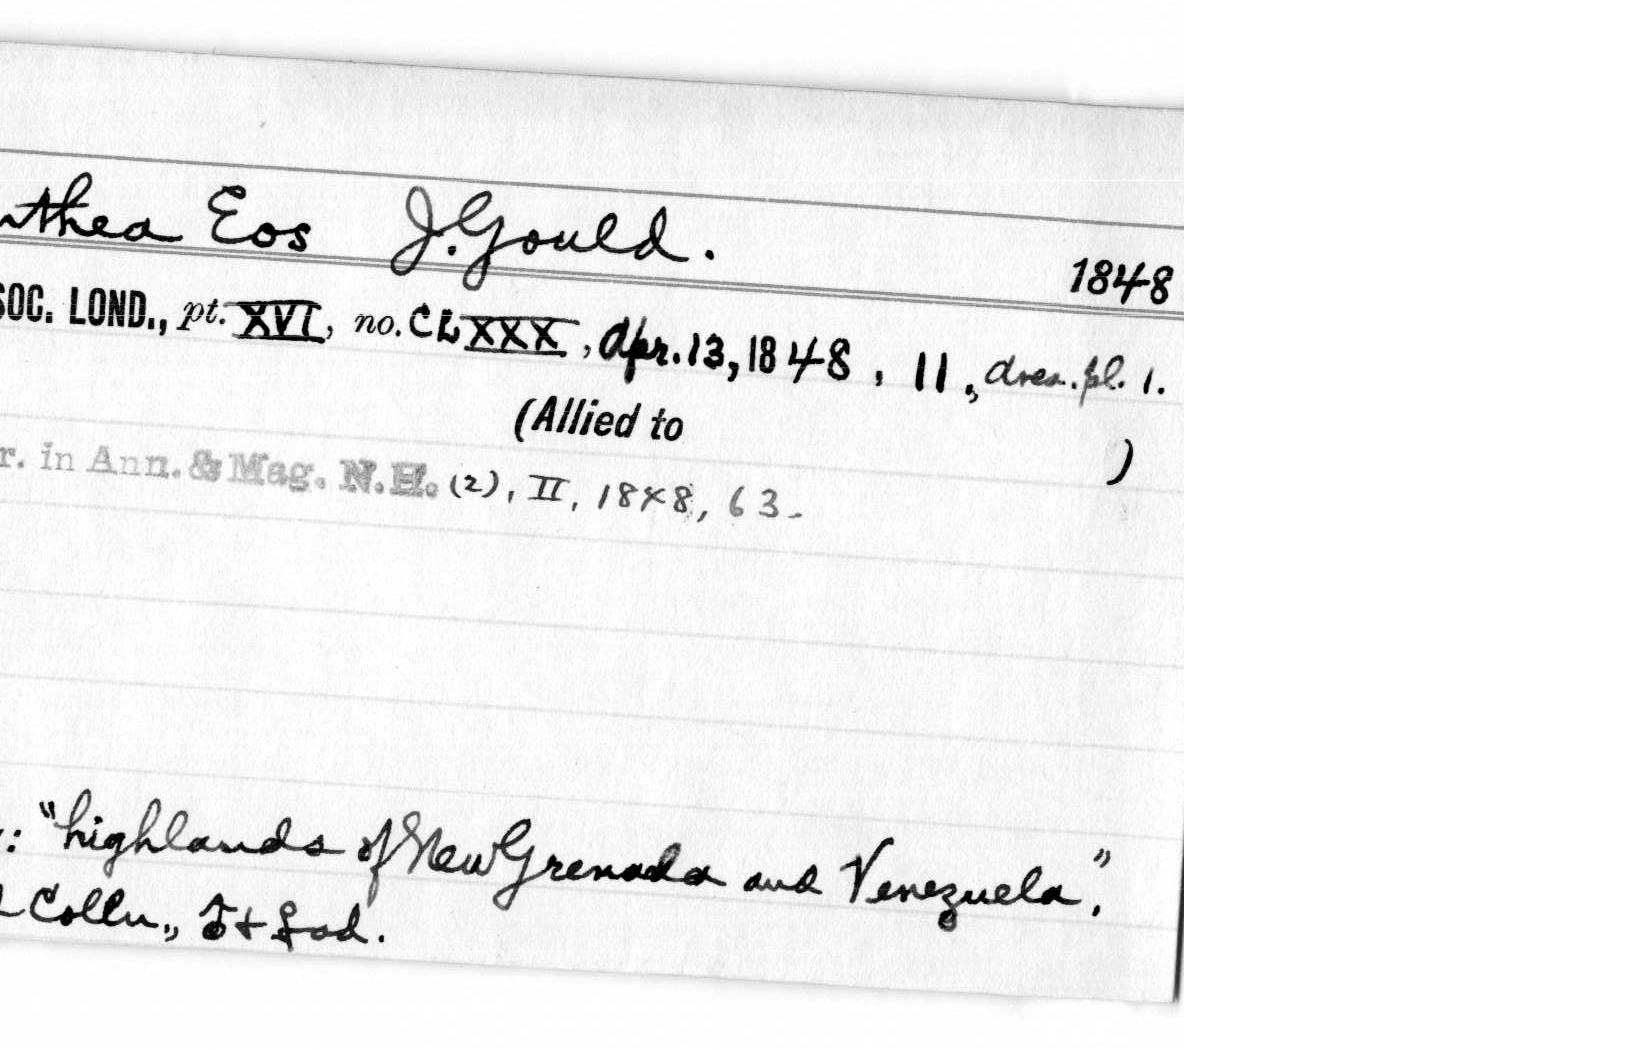 nthea Eos J. Gould.
1848
SOC. LOND., pt. XVI, no. CLXXX, Apr. 13, 1848, 11, Aves. pl. 1.
(Allied to )
r. in Ann. & Mag. N.H. (2), II, 1848, 63.
: "highlands of New Grenada and Venezuela."
Colln., ♂ + ♀ ad.